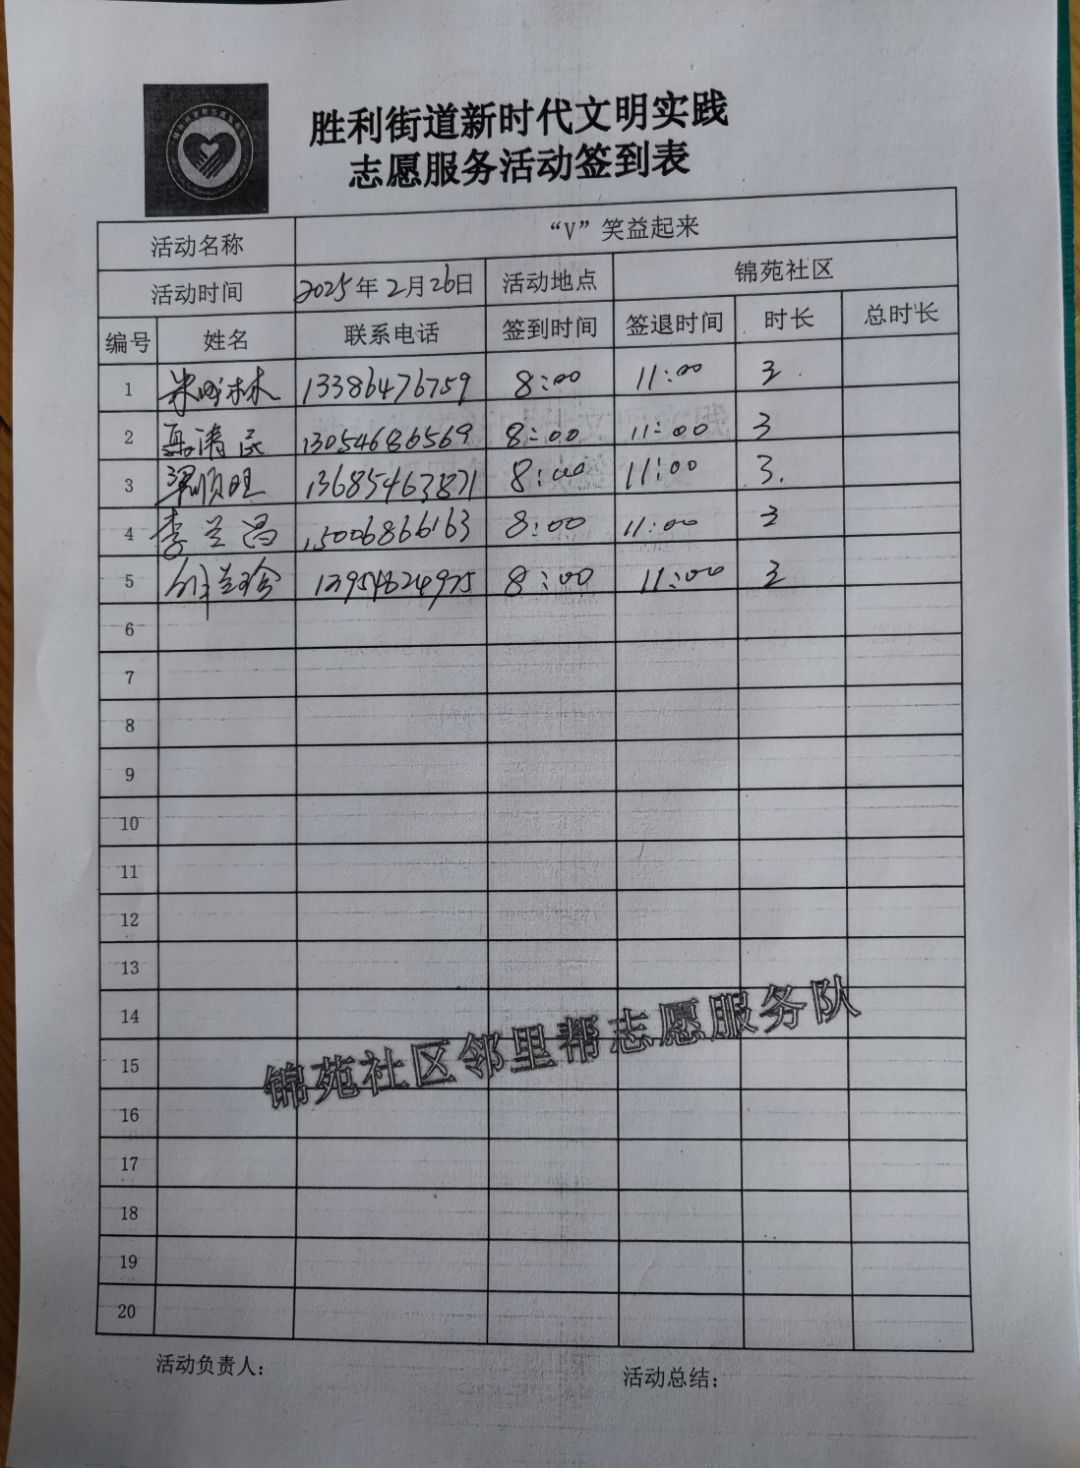 胜利街道新时代文明实践
志愿服务活动签到表
活动名称 “V”笑益起来
活动时间 2025年2月26日 活动地点 锦苑社区
编号 姓名 联系电话 签到时间 签退时间 时长 总时长
1 林 13386476759 8:00 11:00 3
2 清民 13054686569 8:00 11:00 3
3 梁顺旺 13685463871 8:00 11:00 3.
4 李兰昌 15006866163 8:00 11:00 3
5 13954624975 8:00 11:00 3
6
7
8
9
10
11
12
13
14
15
16
17
18
19
20
锦苑社区邻里帮志愿服务队
活动负责人: 活动总结: